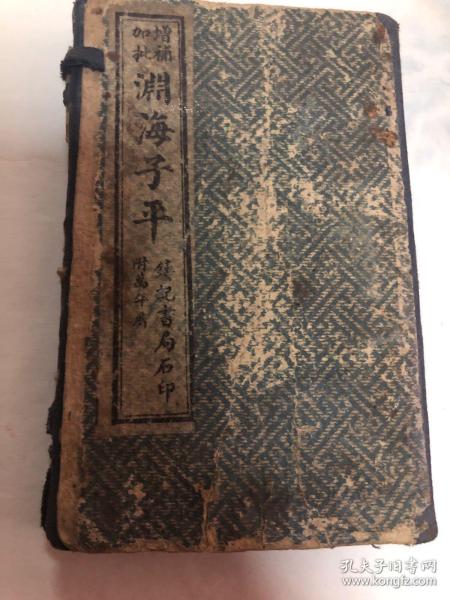 增補
加批
淵海子平
附萬年曆
錢記書局石印
孔夫子旧书网
www.kongfz.com